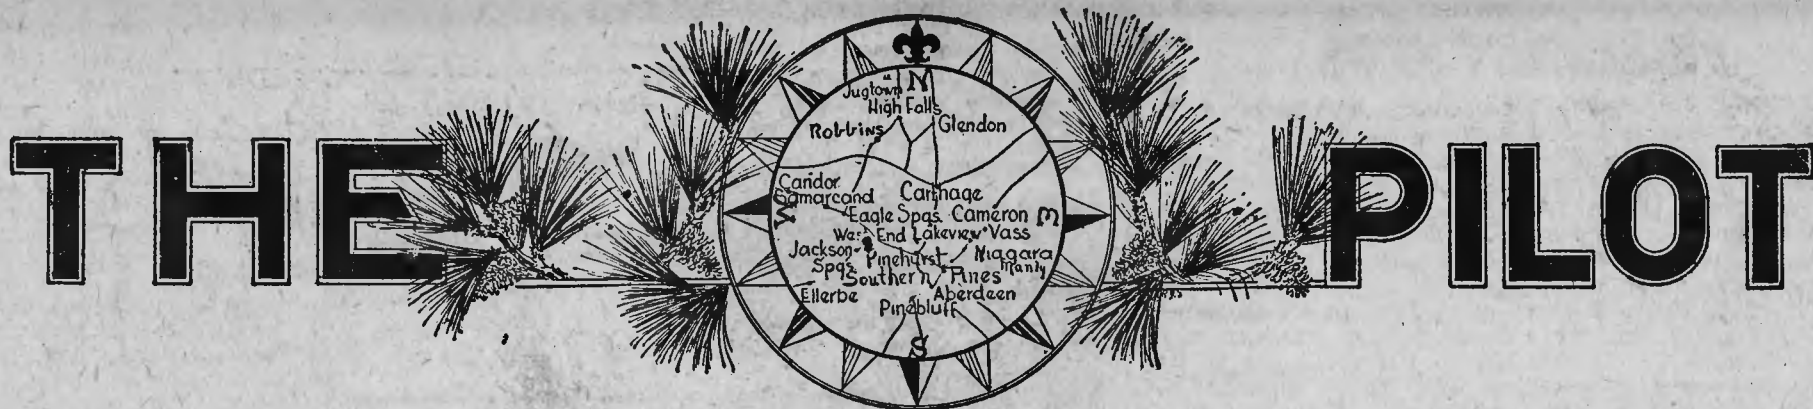 THE PILOT
N
Jugtown
High Falls
Robbins Glendon
Candor
Samarcand Carthage
W Eagle Spgs. Cameron E
West End Lakeview Vass
Jackson Spgs Pinehurst Niagara
Manly
Southern Pines
Ellerbe Aberdeen
Pinebluff
S